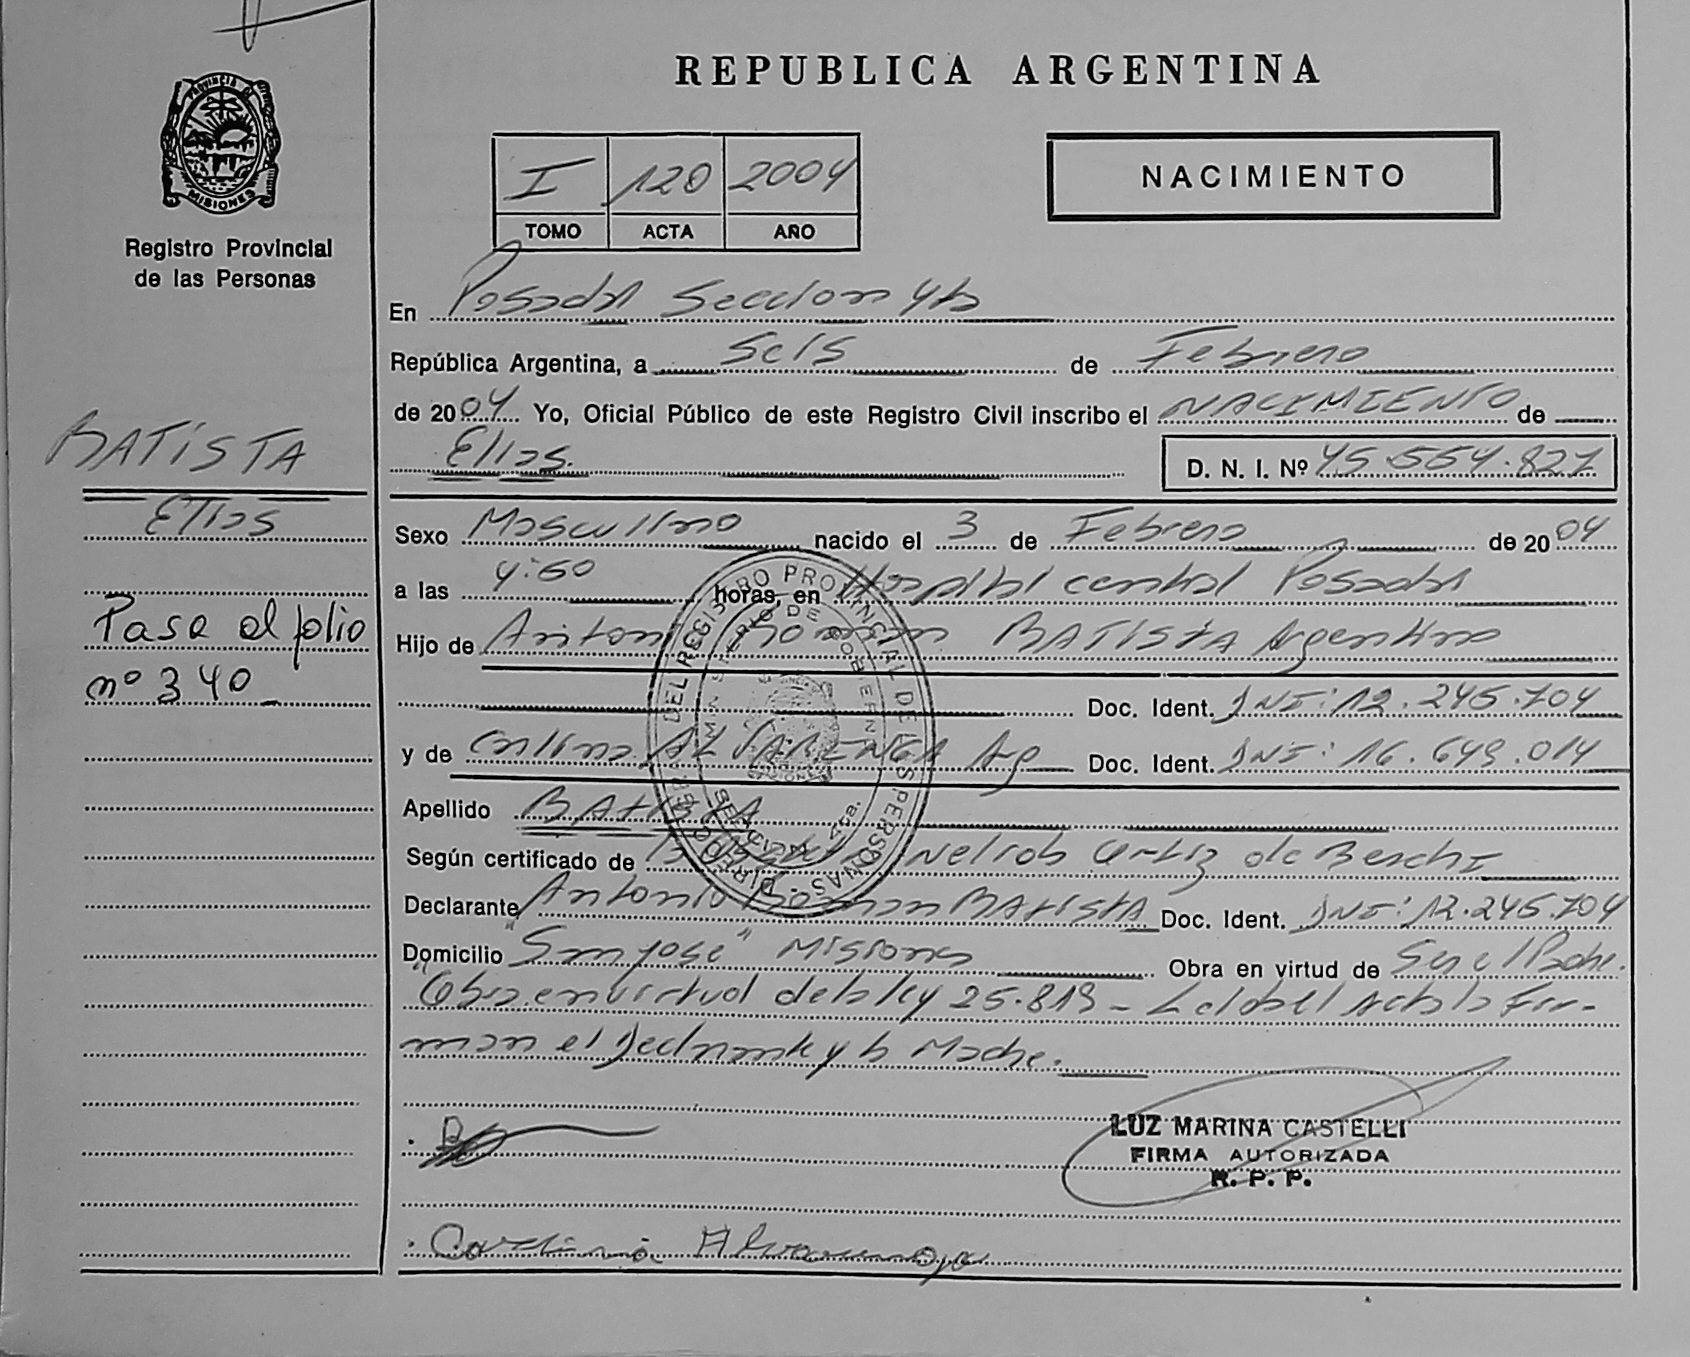 REPUBLICA ARGENTINA
PROVINCIA DE MISIONES
Registro Provincial
de las Personas
I 120 2004
TOMO ACTA AÑO
NACIMIENTO
En Posadas Seccion 4ta
República Argentina, a Seis de Febrero
de 2004 Yo, Oficial Público de este Registro Civil inscribo el NACIMIENTO de
Elias. D. N. I. Nº 45.554.827
BATISTA
Elias
Pase al folio
nº 340
Sexo Masculino nacido el 3 de Febrero de 2004
a las 4:50 horas, en Hospital central Posadas
Hijo de Antonio Roman BATISTA Argentino
Doc. Ident. DNI: 12.245.704
y de ALVARENGA Arg Doc. Ident. DNI: 16.649.014
Apellido BATISTA
Según certificado de Ortiz de
Declarante Antonio Roman BATISTA Doc. Ident. DNI: 12.245.704
Domicilio "San José" Misiones Obra en virtud de Ser el Padre.
Obra en virtud de la ley 25.819 - Leida el Acta la Fir-
man el Declarante y la Madre.
LUZ MARINA CASTELLI
FIRMA AUTORIZADA
R. P. P.
DIRECC DEL REGISTRO PROVINCIAL DE LAS PERSONAS
MINISTERIO DE GOBIERNO
SECCION 4ta.